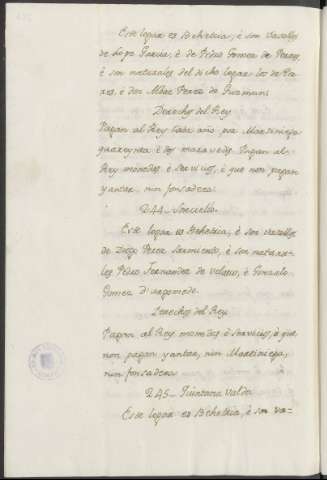 Este logar es Behetria, è son vasallos
de Lope Garcia, è de Pedro Gomez de Porras,
è son naturales del dicho logar los de Porres,
è don Alvar Perez de Guzman.
Derechos del Rey
Pagan al Rey cada año por Martiniega
quarenta è dos maravedis. Pagan al
Rey monedas è servicios, è que non pagan
yantar, nin fonsadera.
244_
Este logar es Behetria, è son vasallos
de Diego Perez Sarmiento, è son naturales
Pedro Fernandez de Velasco, è Gonzalo
Gomez
Derechos del Rey
Pagan al Rey monedas è servicios, è que
non pagan yantar, nin Martiniega,
nin fonsadera.
245_ Quintana
Este logar es Behetria, è son va=